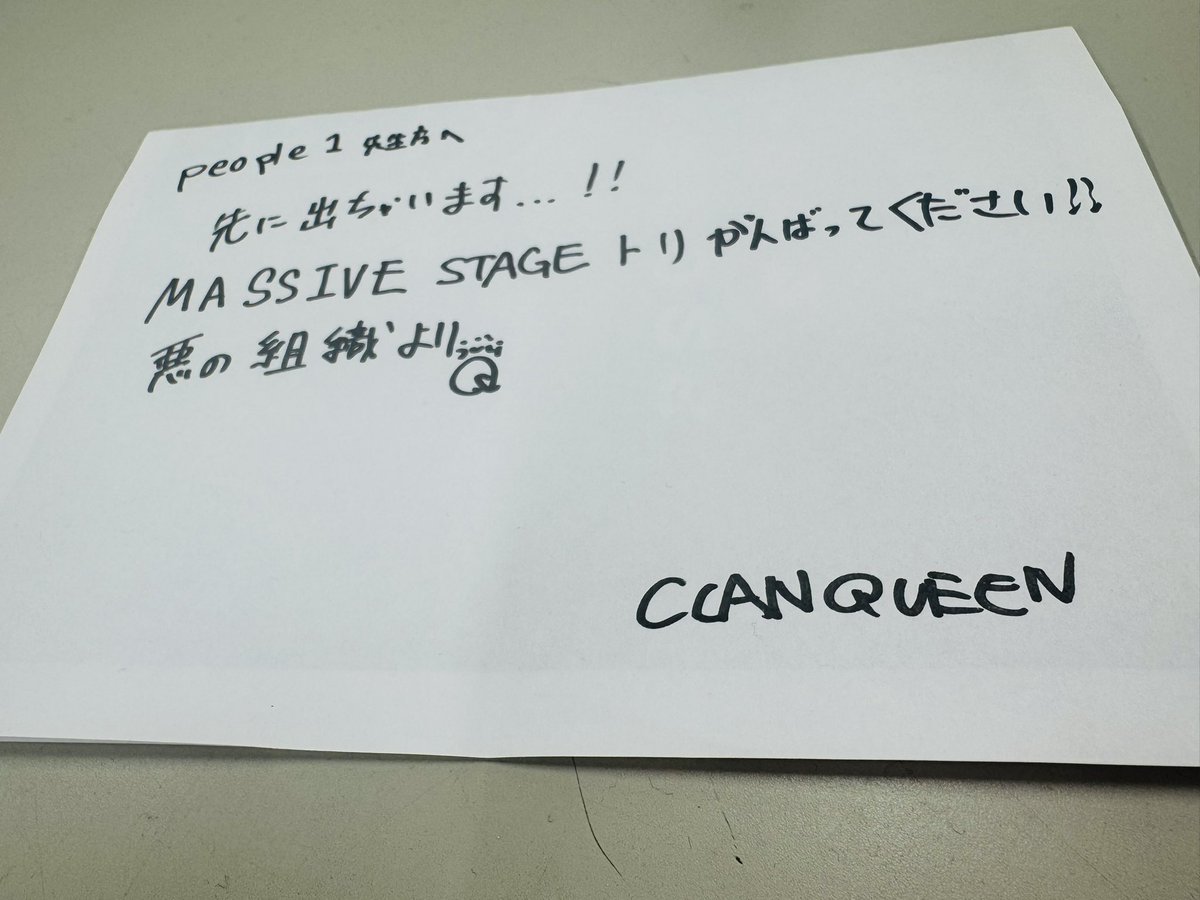 people 1 先生方へ
先に出ちゃいます...!!
MASSIVE STAGE トリ がんばってください!!
悪の組織より
Q
CLAN QUEEN